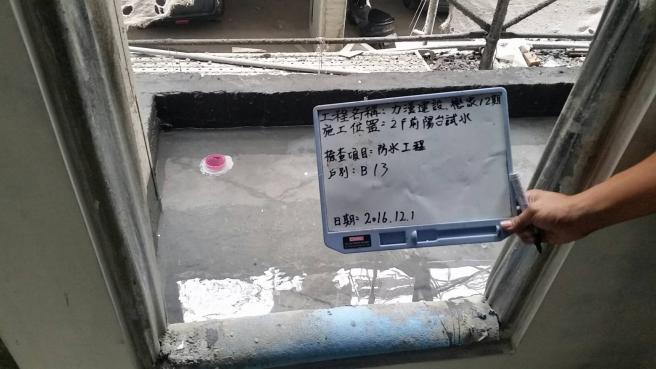 工程名稱：力漢建設.戀家12期
施工位置：2F前陽台試水
檢查項目：防水工程
戶別：B13
日期：2016.12.1